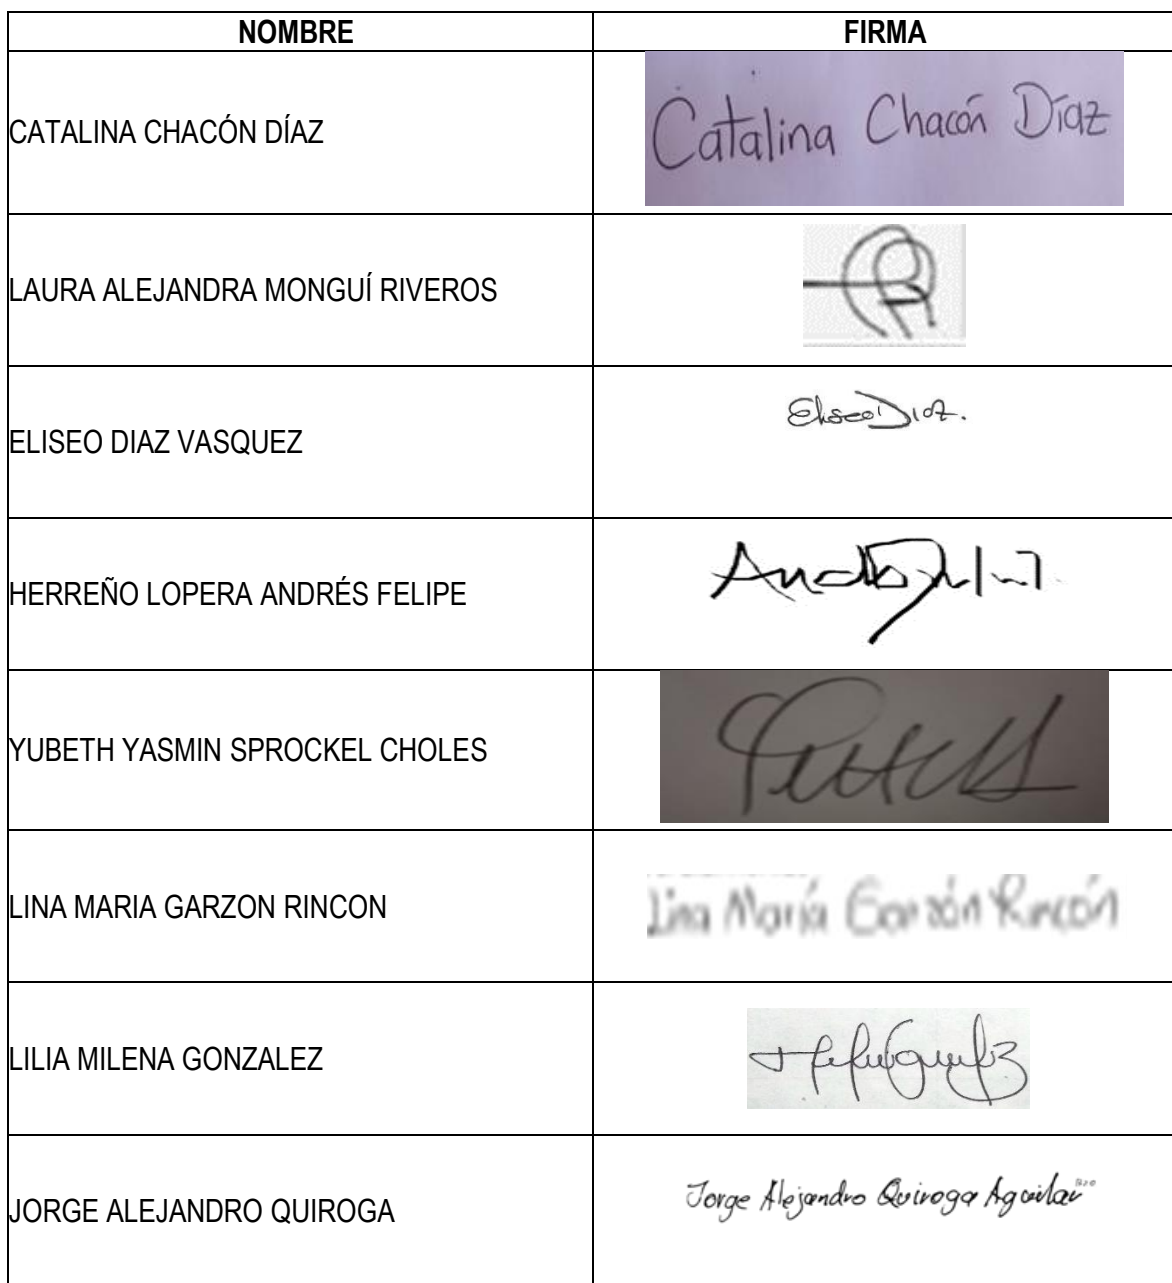 NOMBRE FIRMA
CATALINA CHACÓN DÍAZ Catalina Chacón Díaz
LAURA ALEJANDRA MONGUÍ RIVEROS
ELISEO DIAZ VASQUEZ Eliseo Diaz.
HERREÑO LOPERA ANDRÉS FELIPE
YUBETH YASMIN SPROCKEL CHOLES
LINA MARIA GARZON RINCON Lina María Garzón Rincón
LILIA MILENA GONZALEZ
JORGE ALEJANDRO QUIROGA Jorge Alejandro Quiroga Aguilar